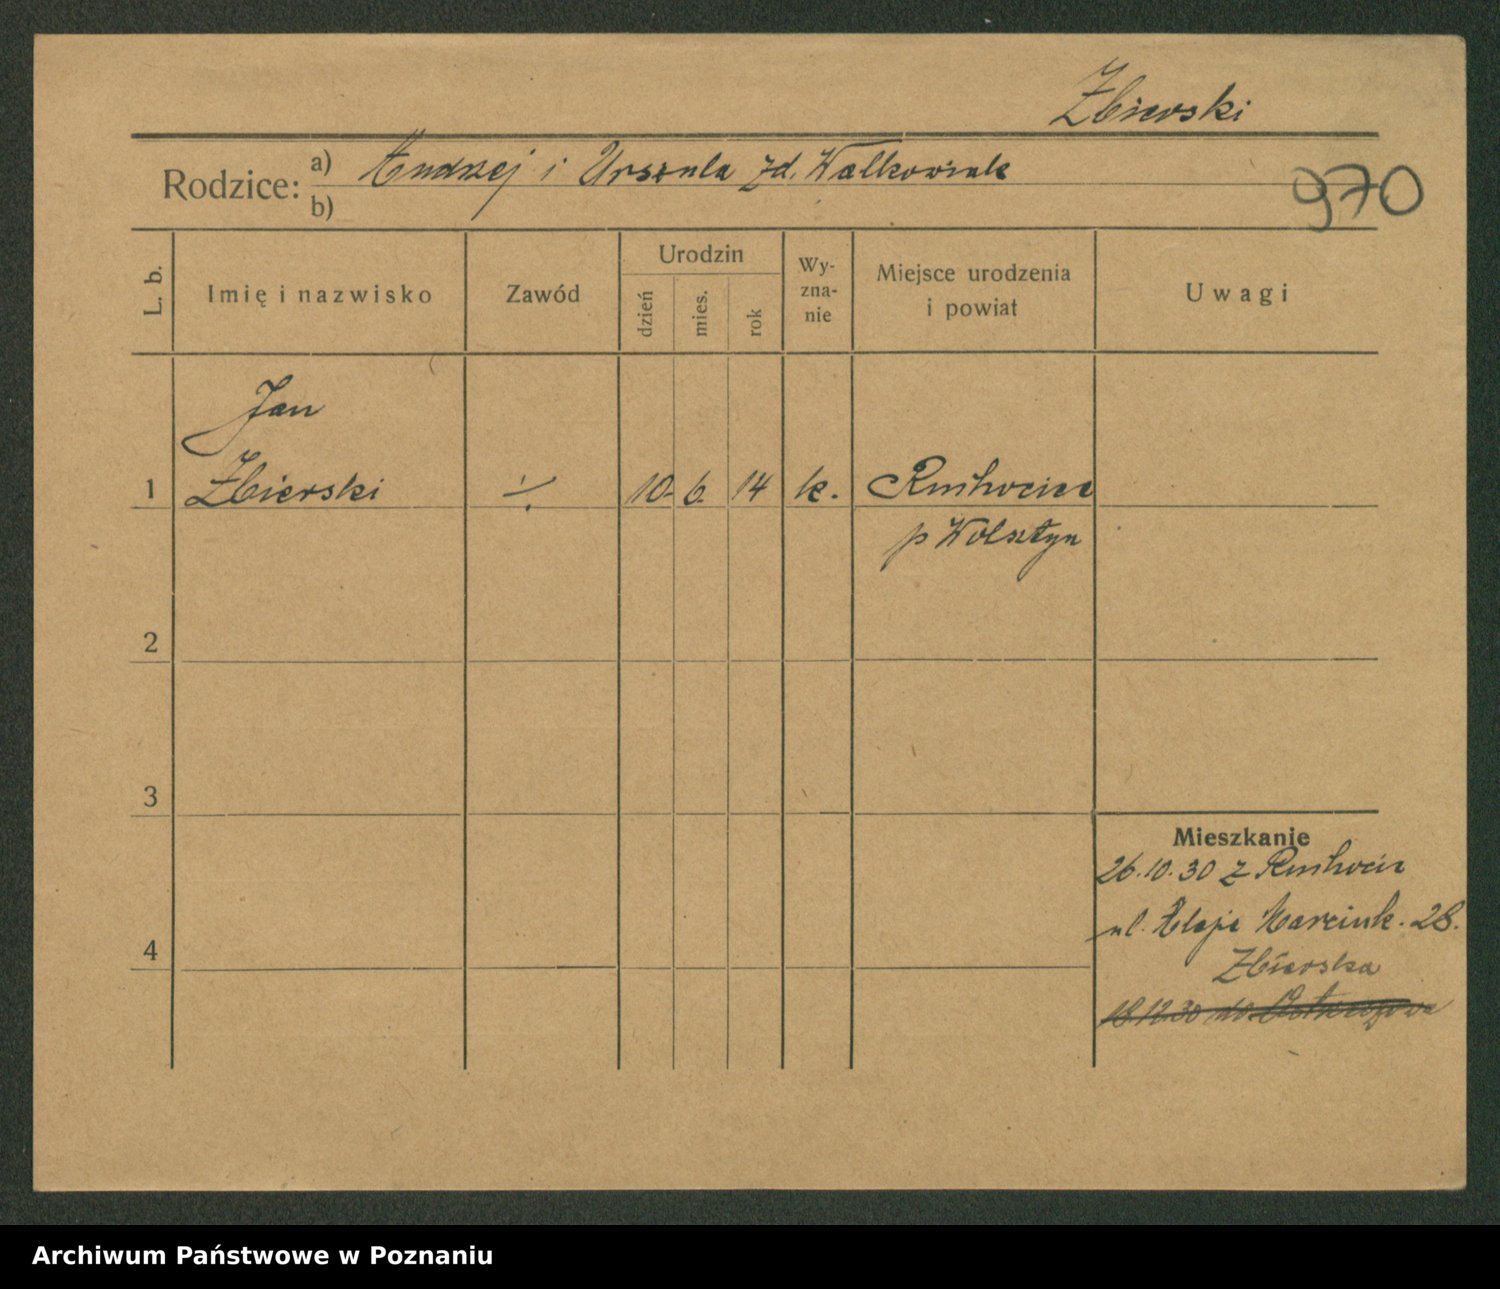 Zbierski
Rodzice: a) Andrzej i Urszula zd. Walkowiak
b)
970
L. b.
Imię i nazwisko
Zawód
Urodzin
dzień
mies.
rok
Wy-
zna-
nie
Miejsce urodzenia
i powiat
Uwagi
Jan
1 Zbierski ./. 10. 6. 14 k. Ruchocice
p Wolsztyn
2
3
4
Mieszkanie
26.10.30 z Ruchocic
ul. Aleje Marcink. 28.
Zbierska
18.12.30 do
Archiwum Państwowe w Poznaniu